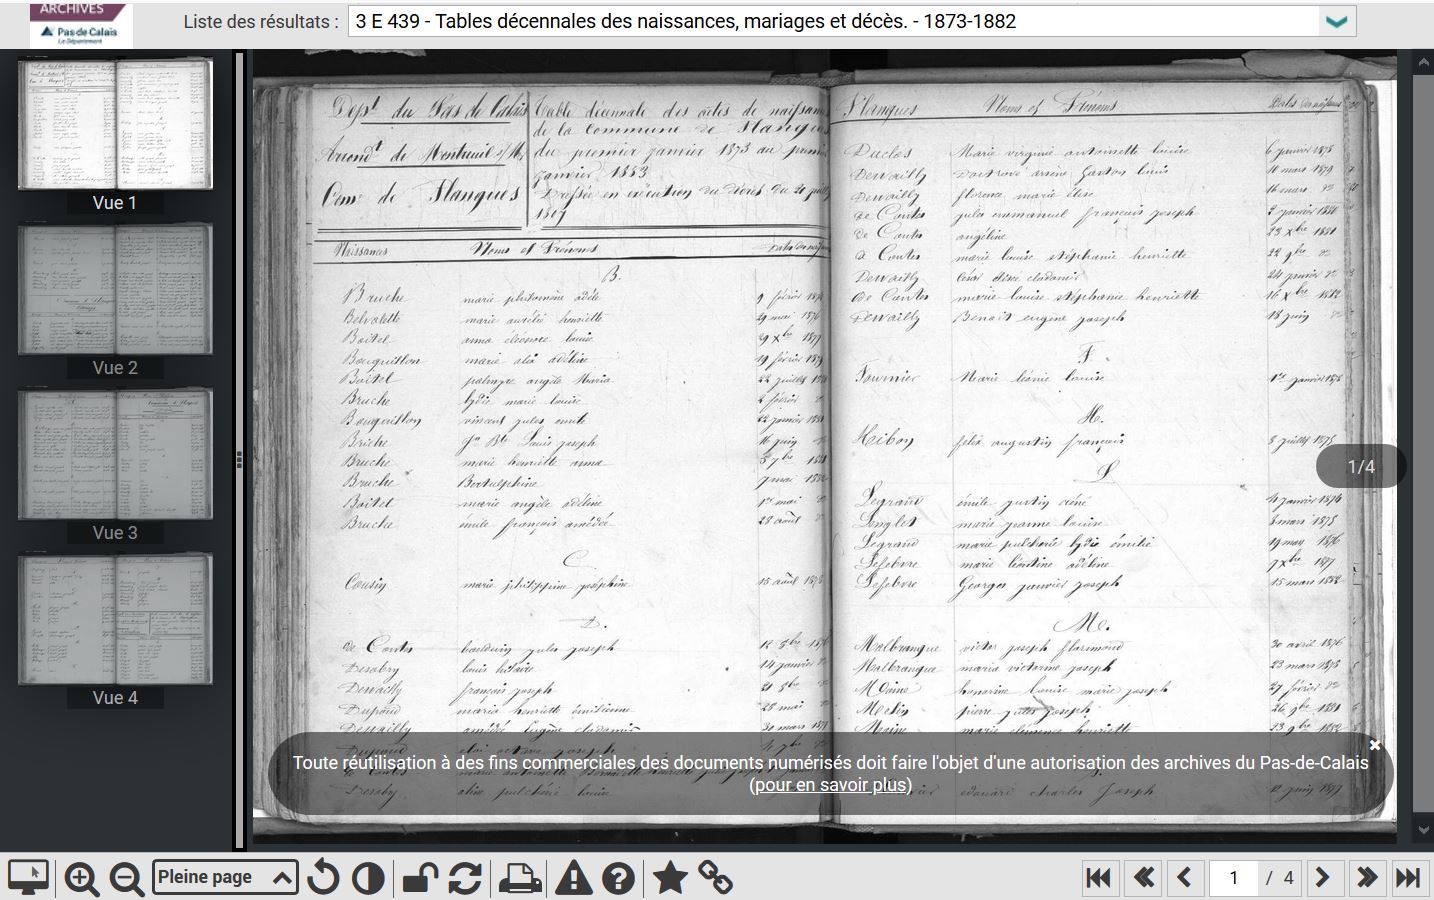 ARCHIVES
Pas de Calais
Le Département
Liste des résultats :
3 E 439 - Tables décennales des naissances, mariages et décès. - 1873-1882
Vue 1
Vue 2
Vue 3
Vue 4
Dept du Pas de Calais
Arrondt de Montreuil s/M
Com de Planques
Table décennale des actes de naissan
de la commune de Planques
du premier janvier 1873 au premi
janvier 1883
Dressée en exécution du décret du 20 juill
1807
Naissances Noms et Prénoms
B.
Bruche marie philomène adèle 9 février
Belvalette marie aurélie henriette 29 mai 1876
Boitel anna éléonore louise 29 Xbre 1877
Bouquillon marie alix adéline 19 février
Boitel palmyre angèle Maria 22 juillet
Bruche lydie marie louise 2 février
Bouquillon vincent jules emile 22 janvier
Briche Jn Bte Louis joseph 16 juin
Bruche marie henriette anna
Bruche Bertulphine mai
Boitel marie angèle adéline 1er mai
Bruche émile françois amédée 28 août
C
Cousin marie philippine joséphine 15 août
D.
de Contes bauduin jules joseph
Desabry louis hilaire 14 janvier
Dewailly françois joseph
Dupond maria henriette émilienne 28 mai
Dewailly amédée Eugène cladomir 30 mars
Dupond éloi octave joseph
de Contes marie antoinette Bernadette henriette
Desaby aline pulchérie louise
Planques Noms et Prénoms Dates des naissances
Duclos Marie virginie antoinette louise 6 janvier 1878
Dewailly arsène Gaston louis 10 mars 1879
Dewailly florence marie élise 16 mars do
de Contes jules emmanuel françois joseph 2 janvier 1880
de Contes angéline 23 Xbre 1880
de Contes marie louise stéphanie henriette 22 9bre do
Dewailly César cladomir 24 janvier do
de Contes marie louise stéphanie henriette 16 Xbre 1882
Dewailly Benoit eugène joseph 18 juin do
F.
Fournier Marie léonie louise 1er janvier 1878
H.
Hibon félix augustin françois 8 juillet 1875
L
Legrand émile justin réné 4 janvier 1874
Lenglet marie jeanne louise mars 1875
Legrand marie pulchérie lydie émilie 19 mars 1876
Lefebvre marie léontine adéline 7 Xbre 1877
Lefebvre Georges joseph 15 mars 1882
M.
Malbranque victor joseph florimond 30 avril 1876
Malbranque maria victorine joseph 23 mars 1878
Moine honorine louise marie joseph 27 février do
Merlin pierre joseph
Moine marie clémence henriette 23 9bre 1882
edouard charles Joseph 12 juin 1877
1/4
Toute réutilisation à des fins commerciales des documents numérisés doit faire l'objet d'une autorisation des archives du Pas-de-Calais
(pour en savoir plus)
Pleine page
1 / 4